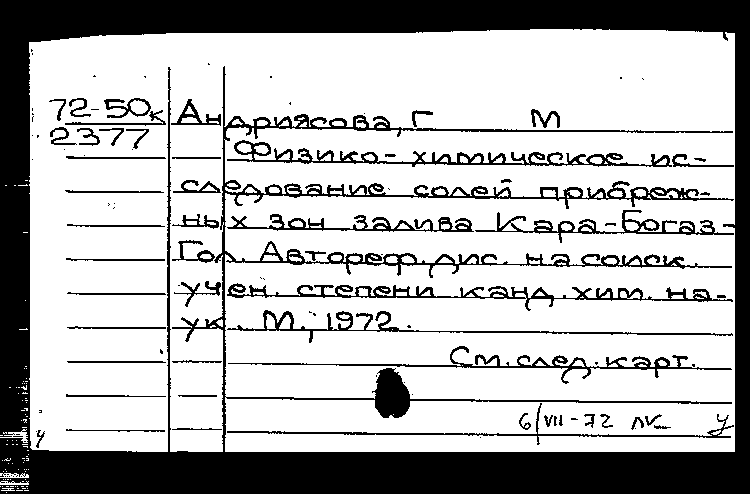 72-50к Андриясова, Г М
2377
Физико-химическое ис-
следование солей прибреж-
ных зон залива Кара-Богаз-
Гол. Автореф.дис. на соиск.
учен. степени канд.хим. на-
ук. М., 1972.
См.след.карт.
6/VII-72
у